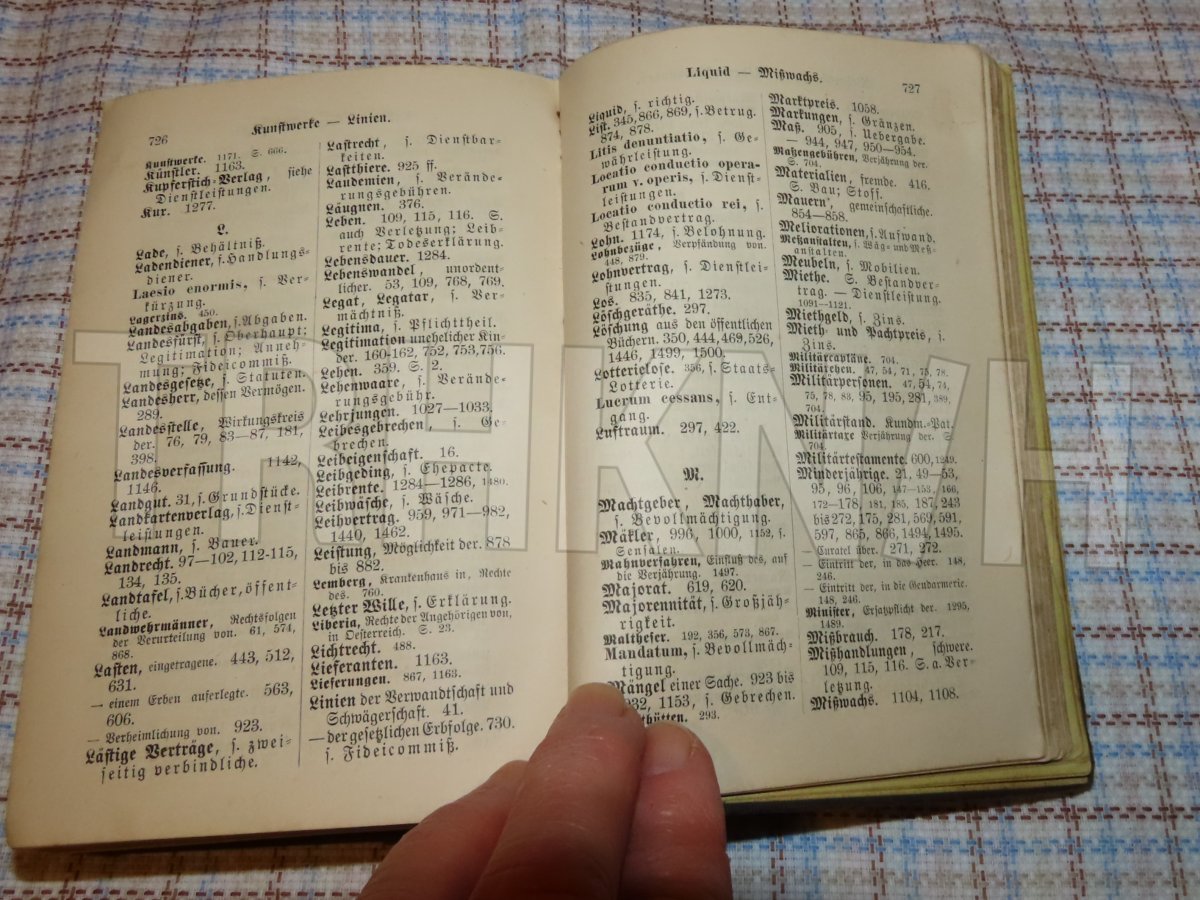 726
Kunstwerke — Linien.
Kunstwerke. 1171. S. 666.
Künstler. 1163.
Kupferstich-Verlag, siehe
Dienstleistungen.
Kur. 1277.
L.
Lade, s. Behältniß.
Ladendiener, s. Handlungs-
diener.
Laesio enormis, s. Ver-
kürzung.
Lagerzins. 450.
Landesabgaben, s. Abgaben.
Landesfürst, s. Oberhaupt;
Legitimation; Anneh-
mung; Fideicommiß.
Landesgesetze, s. Statuten.
Landesherr, dessen Vermögen.
289.
Landesstelle, Wirkungskreis
der. 76, 79, 83—87, 181,
398.
Landesverfassung. 1142,
1146.
Landgut. 31, s. Grundstücke.
Landkartenverlag, s. Dienst-
leistungen.
Landmann, s. Bauer.
Landrecht. 97—102, 112-115,
134, 135.
Landtafel, s. Bücher, öffent-
liche.
Landwehrmänner, Rechtsfolgen
der Verurteilung von. 61, 574,
868.
Lasten, eingetragene. 443, 512,
631.
— einem Erben auferlegte. 563,
606.
— Verheimlichung von. 923.
Lästige Verträge, s. zwei-
seitig verbindliche.
Lastrecht, s. Dienstbar-
keiten.
Lastthiere. 925 ff.
Laudemien, s. Verände-
rungsgebühren.
Läugnen. 376.
Leben. 109, 115, 116. S.
auch Verletzung; Leib-
rente; Todeserklärung.
Lebensdauer. 1284.
Lebenswandel, unordent-
licher. 53, 109, 768, 769.
Legat, Legatar, s. Ver-
mächtniß.
Legitima, s. Pflichttheil.
Legitimation unehelicher Kin-
der. 160-162, 752, 753, 756.
Lehen. 359. S. 2.
Lehenwaare, s. Verände-
rungsgebühr.
Lehrjungen. 1027—1033.
Leibesgebrechen, s. Ge-
brechen.
Leibeigenschaft. 16.
Leibgeding, s. Ehepacte.
Leibrente. 1284—1286, 1480.
Leibwäsche, s. Wäsche.
Leihvertrag. 959, 971—982,
1440, 1462.
Leistung, Möglichkeit der. 878
bis 882.
Lemberg, Krankenhaus in, Rechte
des. 760.
Letzter Wille, s. Erklärung.
Liberia, Rechte der Angehörigen von,
in Oesterreich. S. 23.
Lichtrecht. 488.
Lieferanten. 1163.
Lieferungen. 867, 1163.
Linien der Verwandtschaft und
Schwägerschaft. 41.
— der gesetzlichen Erbfolge. 730.
s. Fideicommiß.
Liquid — Mißwachs.
727
Liquid, s. richtig.
List. 345, 866, 869, s. Betrug.
874, 878.
Litis denuntiatio, s. Ge-
währleistung.
Locatio conductio opera-
rum v. operis, s. Dienst-
leistungen.
Locatio conductio rei, s.
Bestandvertrag.
Lohn. 1174, s. Belohnung.
Lohnbezüge, Verpfändung von.
448, 879.
Lohnvertrag, s. Dienstlei-
stungen.
Los. 835, 841, 1273.
Löschgeräthe. 297.
Löschung aus den öffentlichen
Büchern. 350, 444, 469, 526,
1446, 1499, 1500.
Lotterielose. 356, s. Staats-
Lotterie.
Lucrum cessans, s. Ent-
gang.
Luftraum. 297, 422.
M.
Machtgeber, Machthaber,
s. Bevollmächtigung.
Mäkler, 996, 1000, 1152, s.
Sensalen.
Mahnverfahren, Einfluß des, auf
die Verjährung. 1497.
Majorat. 619, 620.
Majorennität, s. Großjäh-
rigkeit.
Maltheser. 192, 356, 573, 867.
Mandatum, s. Bevollmäch-
tigung.
Mängel einer Sache. 923 bis
932, 1153, s. Gebrechen.
293.
Marktpreis. 1058.
Markungen, s. Gränzen.
Maß. 905, s. Uebergabe.
— 944, 947, 950—954.
Maßengebühren, Verjährung der.
S. 704.
Materialien, fremde. 416.
S. Bau; Stoff.
Mauern, gemeinschaftliche.
854—858.
Meliorationen, s. Aufwand.
Meßanstalten, s. Wäg- und Meß-
anstalten.
Meubeln, s. Mobilien.
Miethe. S. Bestandver-
trag. — Dienstleistung.
1091—1121.
Miethgeld, s. Zins.
Mieth- und Pachtpreis, s.
Zins.
Militärcapläne. 704.
Militärehen. 47, 54, 71, 75, 78.
Militärpersonen. 47, 54, 74,
75, 78, 83, 95, 195, 281, 389,
704.
Militärstand. Kundm.-Pat.
Militärtaxe Verjährung der. S
704.
Militärtestamente. 600, 1249.
Minderjährige. 21, 49—53,
95, 96, 106, 147—153, 166,
172—178, 181, 185, 187, 243
bis 272, 175, 281, 569, 591,
597, 865, 866, 1494, 1495.
— Curatel über. 271, 272.
— Eintritt der, in das Heer. 148,
246.
— Eintritt der, in die Gendarmerie.
148, 246.
Minister, Ersatzpflicht der. 1295,
1489.
Mißbrauch. 178, 217.
Mißhandlungen, schwere.
109, 115, 116. S. a. Ver-
letzung.
Mißwachs. 1104, 1108.